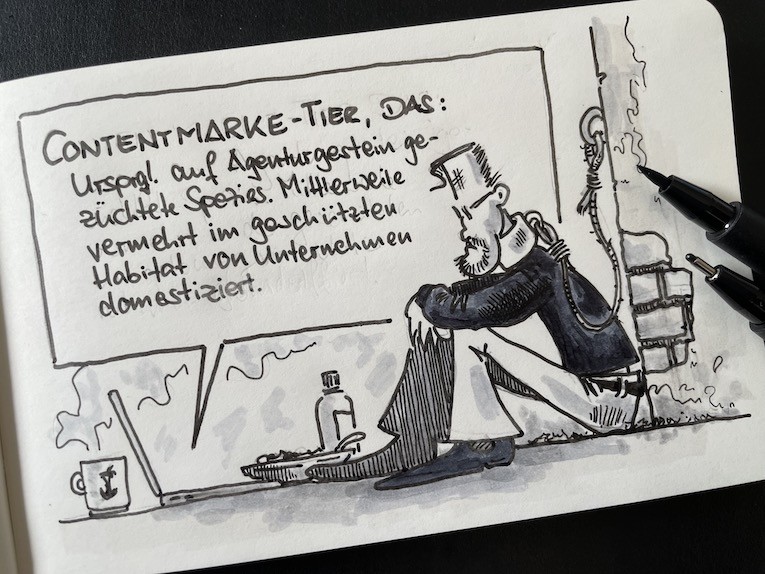 CONTENTMARKE-TIER, DAS:
Ursprgl. auf Agenturgestein ge-
züchtete Spezies. Mittlerweile
vermehrt im geschützten
Habitat von Unternehmen
domestiziert.